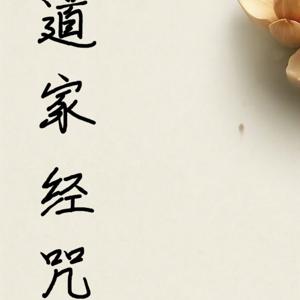 道家经咒